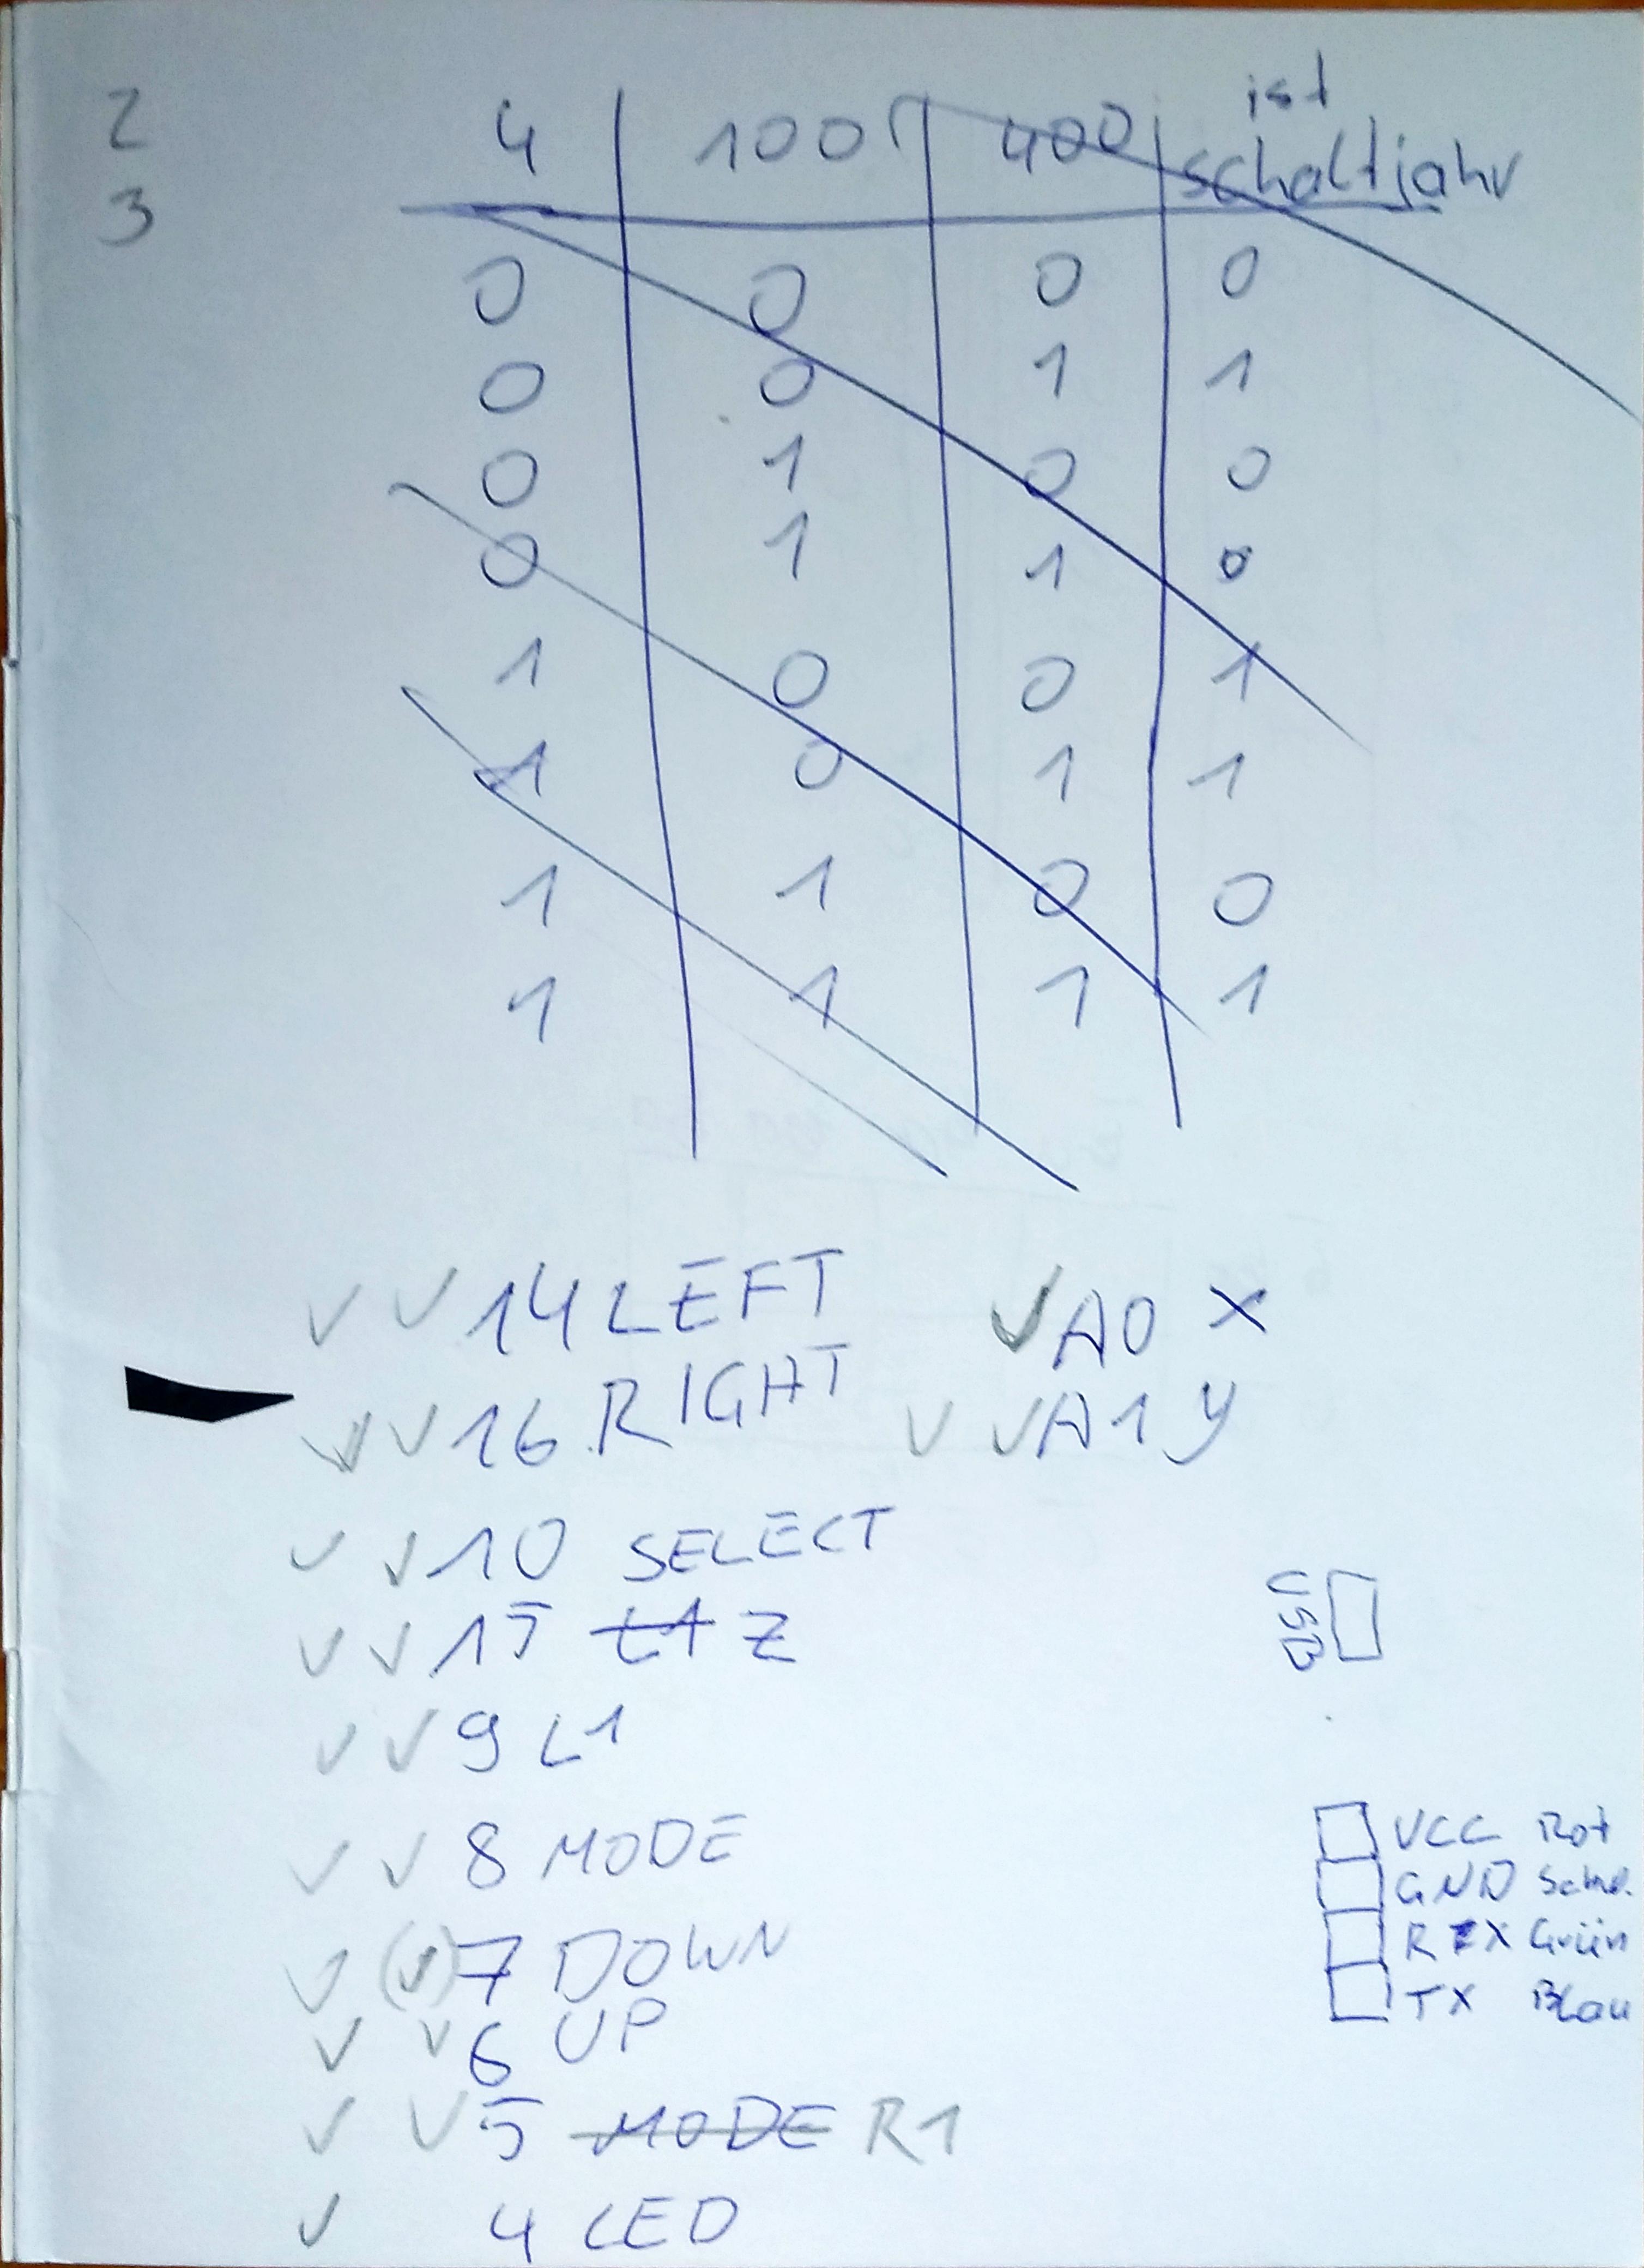 2
3
4 100 400 ist schaltjahr
0 0 0 0
0 0 1 1
0 1 0 0
0 1 1 0
1 0 0 1
1 0 1 1
1 1 0 0
1 1 1 1
✓ ✓ 14 LEFT ✓ A0 X
✓ ✓ 16 RIGHT ✓ ✓ A1 y
✓ ✓ 10 SELECT
✓ ✓ 15 L1 Z
✓ ✓ 9 L1
✓ ✓ 8 MODE
✓ (✓) 7 DOWN
✓ ✓ 6 UP
✓ ✓ 5 MODE R1
✓ 4 LED
USB
VCC Rot
GND Schw.
RX Grün
TX Blau